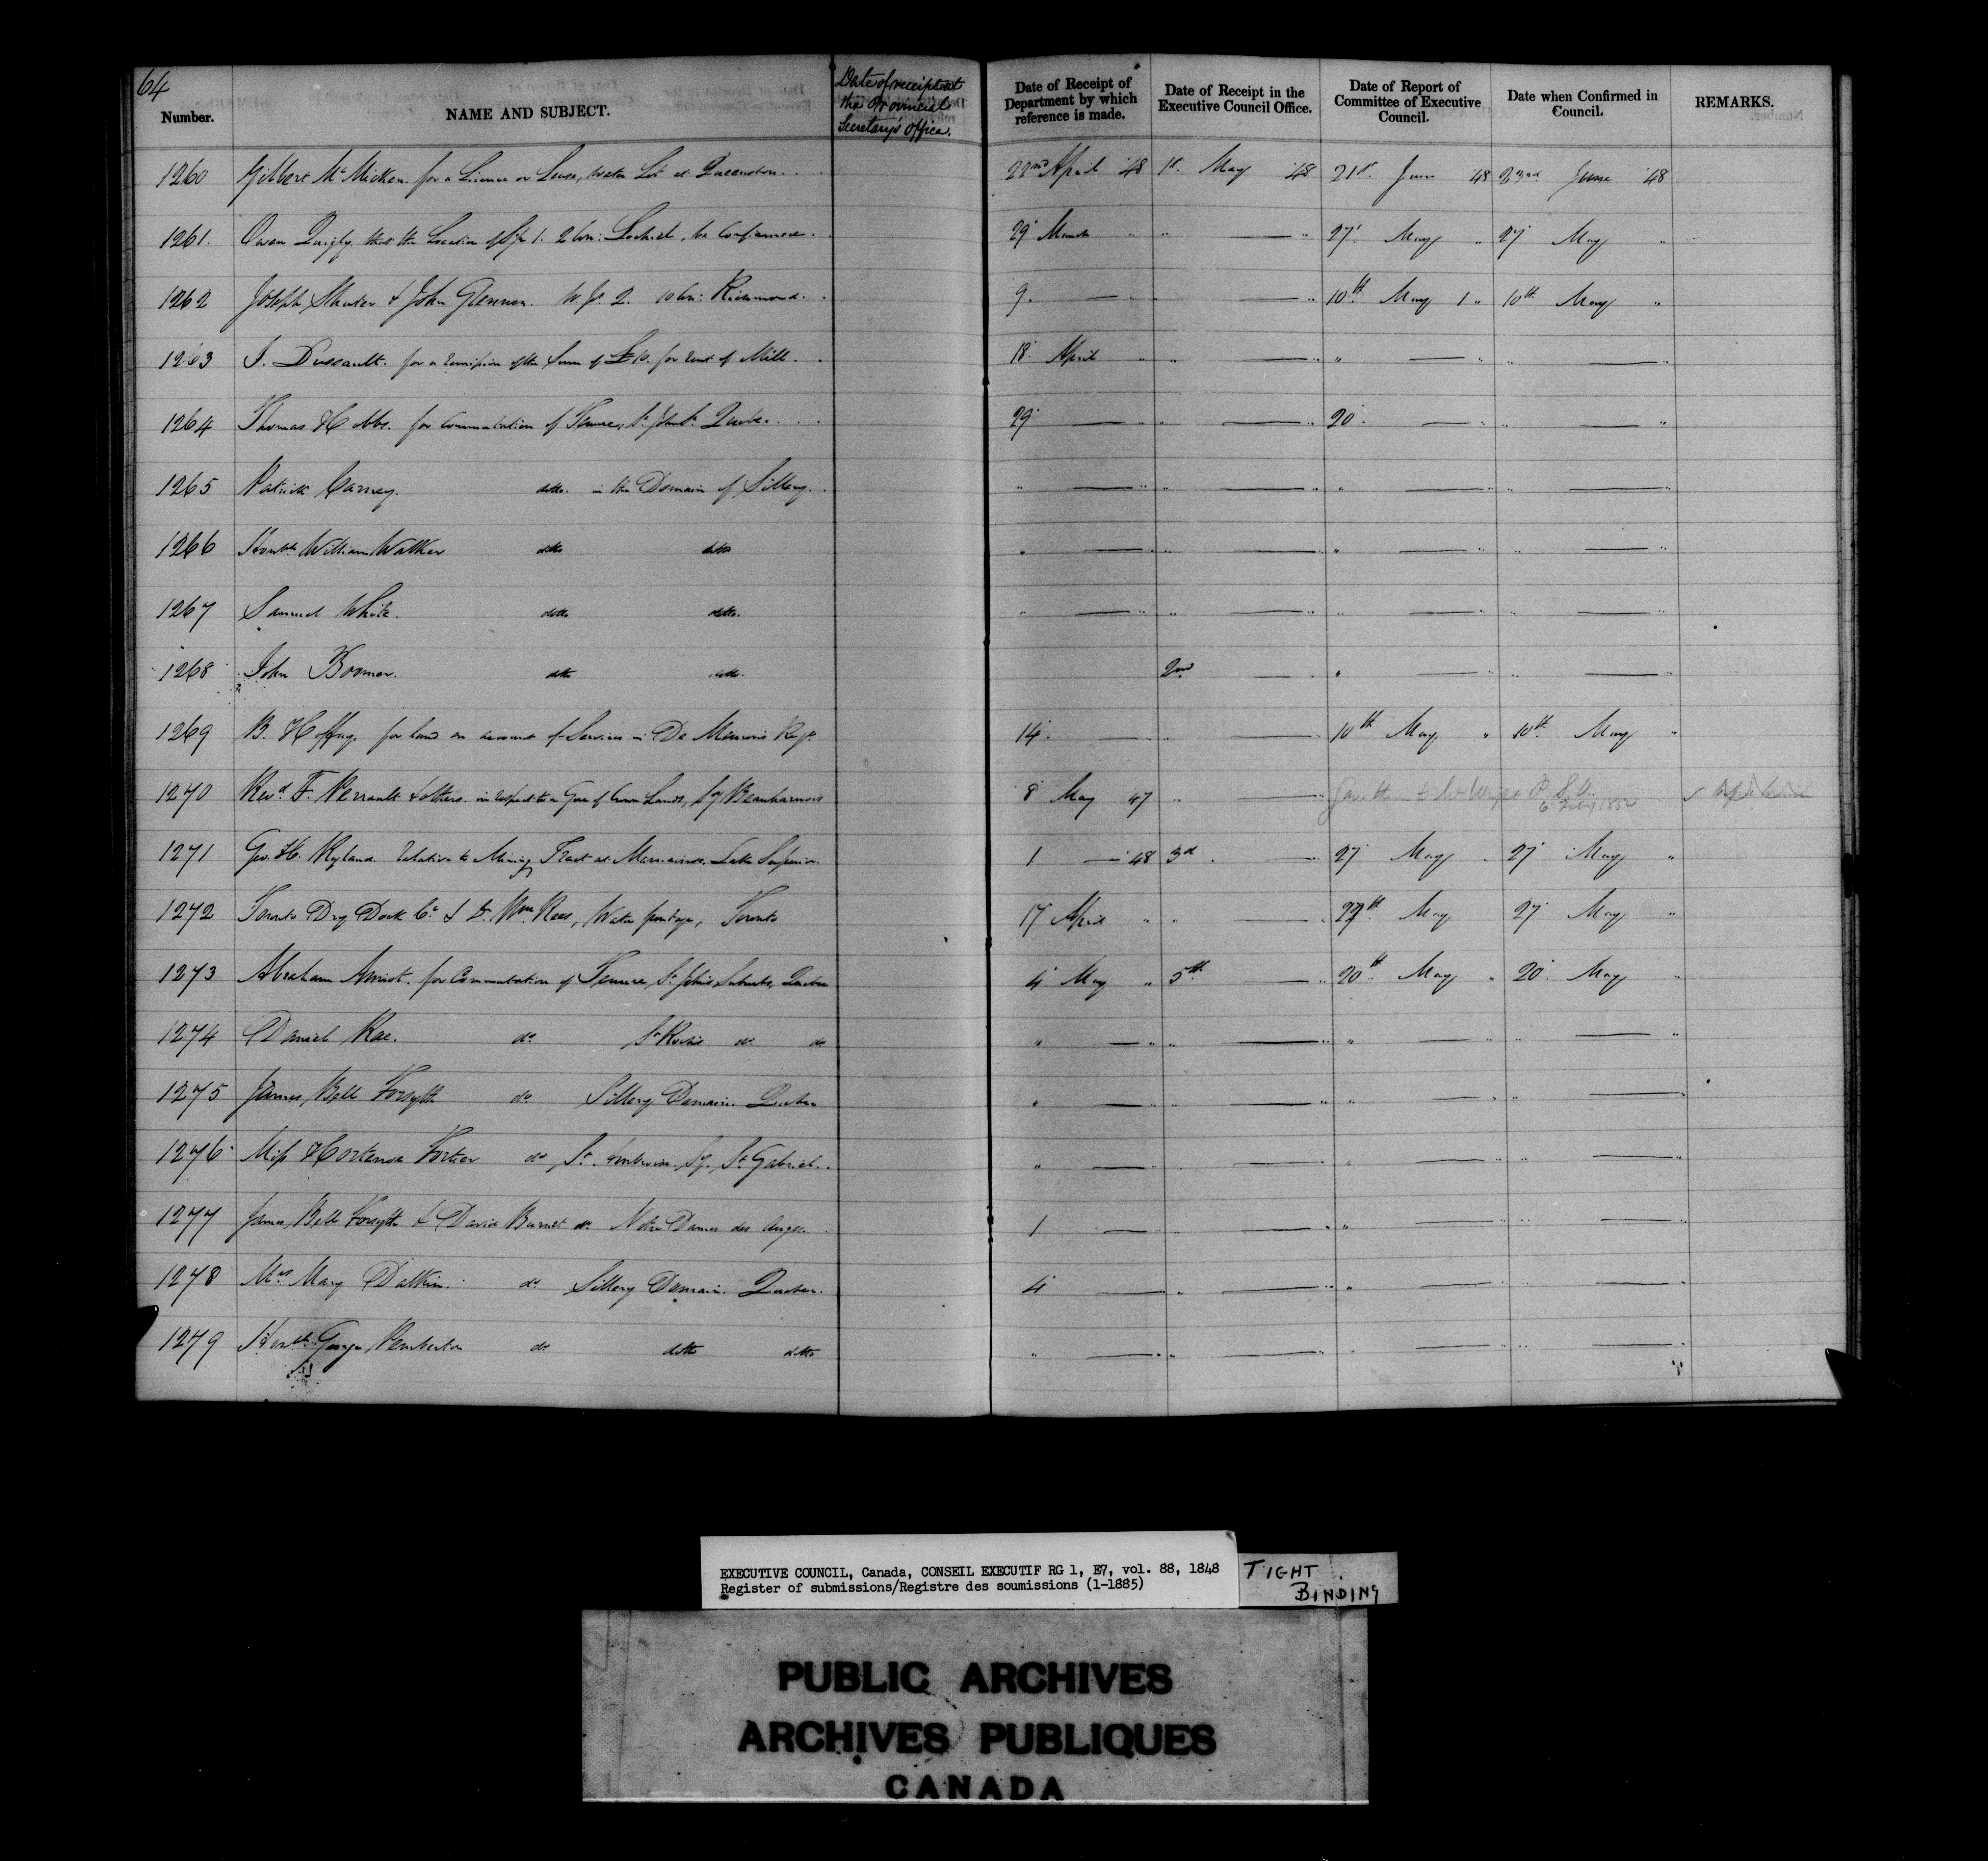 64
Number. NAME AND SUBJECT. Date of receipt at the Provincial Secretary's office. Date of Receipt of Department by which reference is made. Date of Receipt in the Executive Council Office. Date of Report of Committee of Executive Council. Date when Confirmed in Council. REMARKS.
1260 Gilbert McMicken. for a Licence or Lease, Water Lot at Queenston. 22nd April '48 1st May '48 21st June 48 23rd June '48
1261. Owen Quigly that the Location of 1. 2 Con: Lochiel, be Confirmed. 29 March " " — " 27' May " 27 May "
1262 Joseph & John Glennon. W. ½ 2. 10 Con: Richmond. 9. — " — " 10th May " 10th May "
1263 J. Dussault. for a remission of the Sum of for rent of Mill. 18 April " " — " " — " " — "
1264 Thomas Hobbs. for Commutation of Tenure, St. John St. Quebec. 29 — " " — " 20. — " " — "
1265 Patrick Carney. ditto. in the Domain of Sillery. " — " " — " " — " " — "
1266 Honble William Walker ditto ditto " — " " — " " — " " — "
1267 Samuel White. ditto ditto. " — " " — " " — " " — "
1268 John Boomer. ditto ditto. 2nd — " " — " " — "
1269 B. Hoffay. for land on account of Services in De Meurons Regt. 14. — " — " 10th May " 10th May "
1270 Revd. F. Perrault & others. in respect to a Gore of Crown Lands, Sy Beauharnois 8 May 47 " — "
1271 Geo. H. Ryland. relative to Mining Tract at Mamainse, Lake Superior. 1 — 48 3d. — " 27 May " 27 May "
1272 Toronto Dry Dock Co. & Dr. Wm. Rees, Water frontage, Toronto 17 April " " — " May 27 May "
1273 Abraham for Commutation of Tenure, St. John's Suburbs, Quebec 4 May " 5th — " 20th May " 20 May "
1274 Daniel Rae. do. St. Rochs do. do " — " " — " " — " " — "
1275 James Bell Forsyth do. Sillery Domain. Quebec " — " " — " " — " " — "
1276 Miss Hortense Fortier do St. Sy. St. Gabriel. " — " " — " " — " " — "
1277 James Bell Forsyth & David Burnet do. Notre Dames des Anges. 1 — " — " " — " " — "
1278 Mrs Mary Dalkin. do. Sillery Domain. Quebec. 4 — " " — " " — " " — "
1279 Honble. George Pemberton do. ditto ditto " — " " — " " — " " — "
EXECUTIVE COUNCIL, Canada, CONSEIL EXECUTIF RG 1, E7, vol. 88, 1848
Register of submissions/Registre des soumissions (1-1885)
TIGHT
BINDING
PUBLIC ARCHIVES
ARCHIVES PUBLIQUES
CANADA